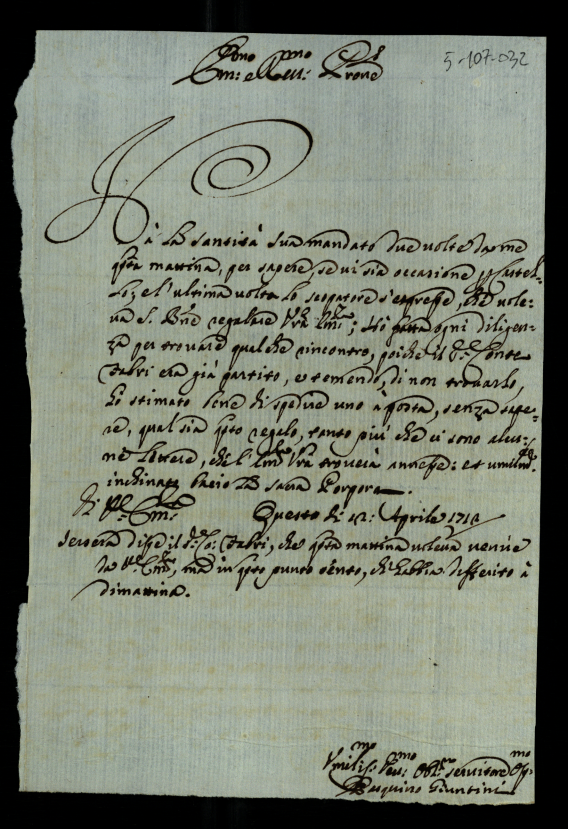 5-107-032
Em:mo e Rev:mo Sig:r Prone
Hà La Santità Sua mandato due volte da me
questa mattina, per sapere, se vi sia occasione p Castel-
lo; e l'ultima volta lo scopatore s'espresse, che vole-
va S. Bne regalare Vra Em:za; Hò fatta ogni diligen-
za per trovare qualche rincontro, poiche il S:r Conte
Fabri era già partito, e temendo, di non trovarlo,
hò stimato bene di spedire uno à posta, senza sape-
re, qual sia qsto regalo, tanto più che ci sono alcu-
ne lettere, che l'Em:za Vra troverà annesse: et umilmte
inchinato bacio La sacra Porpora.
Di V:ra Em:za Questo dì 12: Aprile 1712
Iersera disse il S:r Co: Fabri, che qsta mattina voleva venire
da V:ra Em:za, mà in qsto punto sento, ch'habbia differito à
dimattina.
Umilis:mo Dev:mo Obl:mo servitore Oss:mo
Pasquino Giuntini